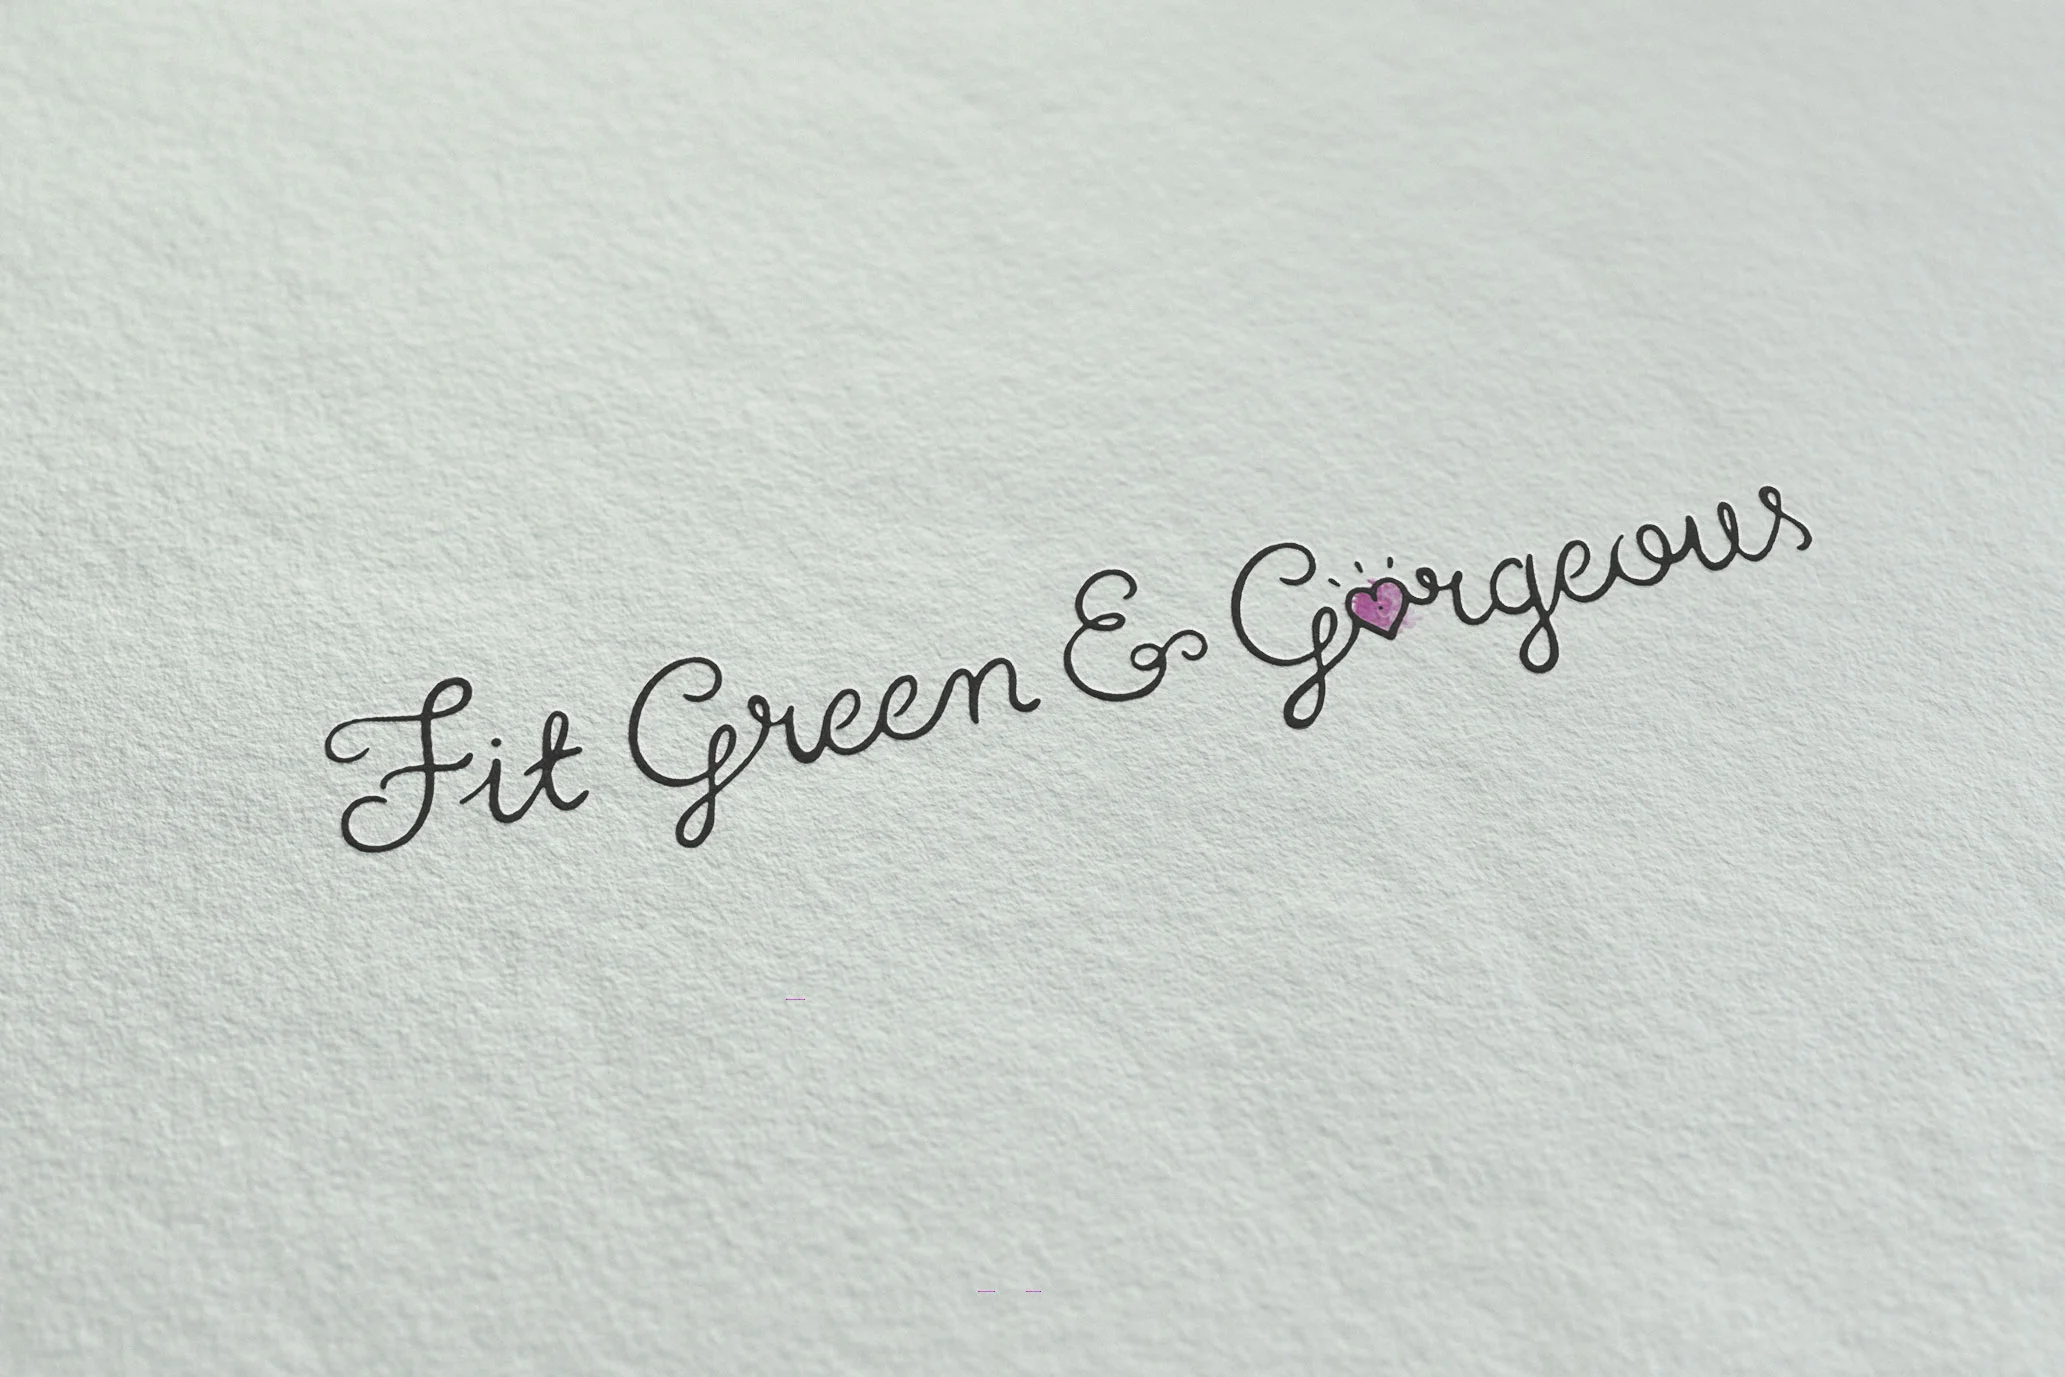 Fit Green & Gorgeous